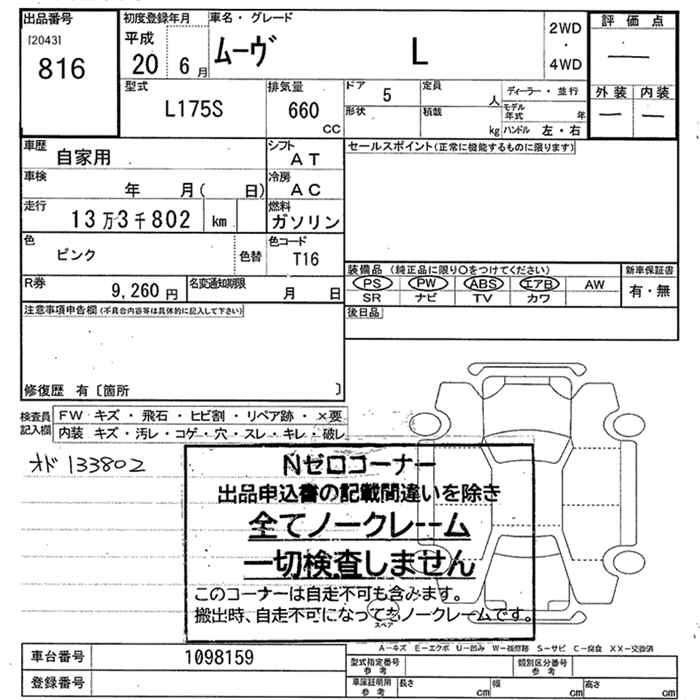 出品番号
[2043]
816
初度登録年月
平成
20 6 月
車名・グレード
ムーヴ L
2WD
・
4WD
評価点
外装 内装
型式
L175S
排気量
660
CC
ドア 5
形状
定員 人
積載 kg
ディーラー・並行
モデル年式 年
ハンドル 左・右
車歴
自家用
シフト
AT
車検
年 月( 日)
冷房
AC
走行
13万3千802 km
燃料
ガソリン
色
ピンク
色替
色コード
T16
R券
9,260 円
名変通知期限
月 日
セールスポイント(正常に機能するものに限ります)
装備品 (純正品に限り○をつけてください)
PS PW ABS エアB AW
SR ナビ TV カワ
新車保証書
有・無
後日品
注意事項申告欄(不具合内容等は具体的に記入して下さい)
修復歴 有〔箇所 〕
検査員記入欄
FW キズ・飛石・ヒビ割・リペア跡・×要
内装 キズ・汚レ・コゲ・穴・スレ・キレ・破レ
オド 133802
Nゼロコーナー
出品申込書の記載間違いを除き
全てノークレーム
一切検査しません
このコーナーは自走不可も含みます。
搬出時、自走不可になってもノークレームです。
スペア
A−キズ E−エクボ U−凹み W−補修跡 S−サビ C−腐食 XX−交換済
車台番号 1098159
登録番号
型式指定番号
参考
類別区分番号
参考
車庫証明用
参考
長さ cm
幅 cm
高さ cm